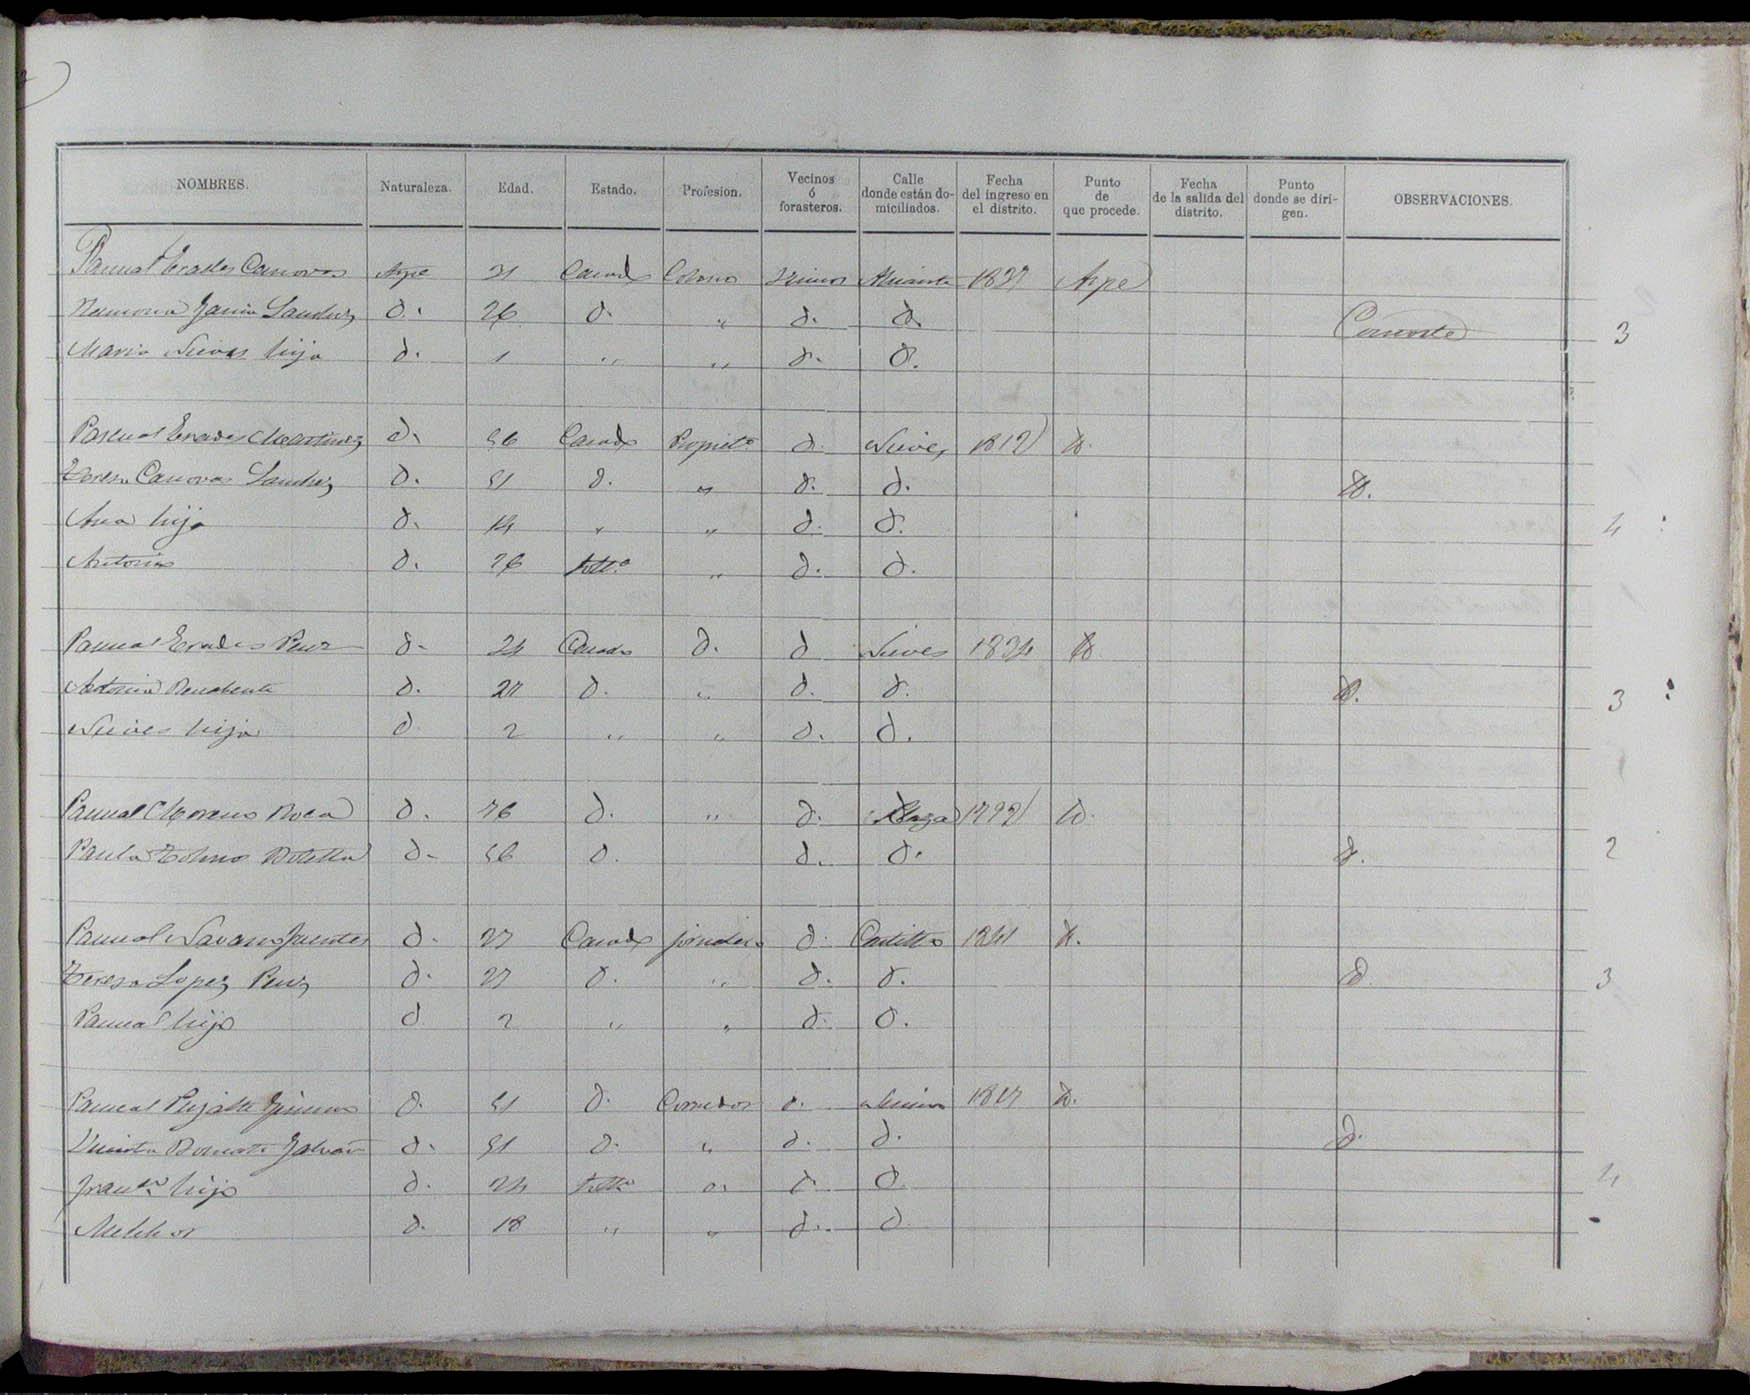 NOMBRES. Naturaleza. Edad. Estado. Profesion. Vecinos ó forasteros. Calle donde están domiciliados. Fecha del ingreso en el distrito. Punto de que procede. Fecha de la salida del distrito. Punto donde se dirigen. OBSERVACIONES.
Pascual Erades Canovas Aspe 31 Casado Colono Vecinos Alicante 1837 Aspe
Ramona Garcia Sanchez d. 26 d. „ d. d. Conorte 3
Maria Nieves hija d. 1 „ „ d. d.
Pascual Erades Martinez d. 56 Casado Propiet.º d. Nieves 1812 d.
Teresa Canovas Sanchez d. 51 d. „ d. d. d.
Ana hija d. 14 „ „ d. d. 4
Antonia d. 26 solt.ª „ d. d.
Pascual Erades Perez d. 34 Casado d. d Nieves 1834 d.
Antonia d. 27 d. „ d. d. d. 3
Nieves hija d. 2 „ „ d. d.
Pascual Moreno Roca d. 76 d. „ d. Plaza 1792 d.
Paula Botella d. 56 d. d. d. d. 2
Pascual Navarro Fuentes d. 27 Casado jornalero d. Castillo 1841 d.
Teresa Lopez Perez d. 27 d. „ d. d. d. 3
Pascual hijo d. 2 „ „ d. d.
Pascual Pujalte Gimenez d. 51 d. Corredor d. 1817 d.
Vicenta Galvañ d. 51 d. „ d. d. d.
Fran.co hijo d. 24 solt.º „ d. d. 4
Melchor d. 18 „ „ d. d.